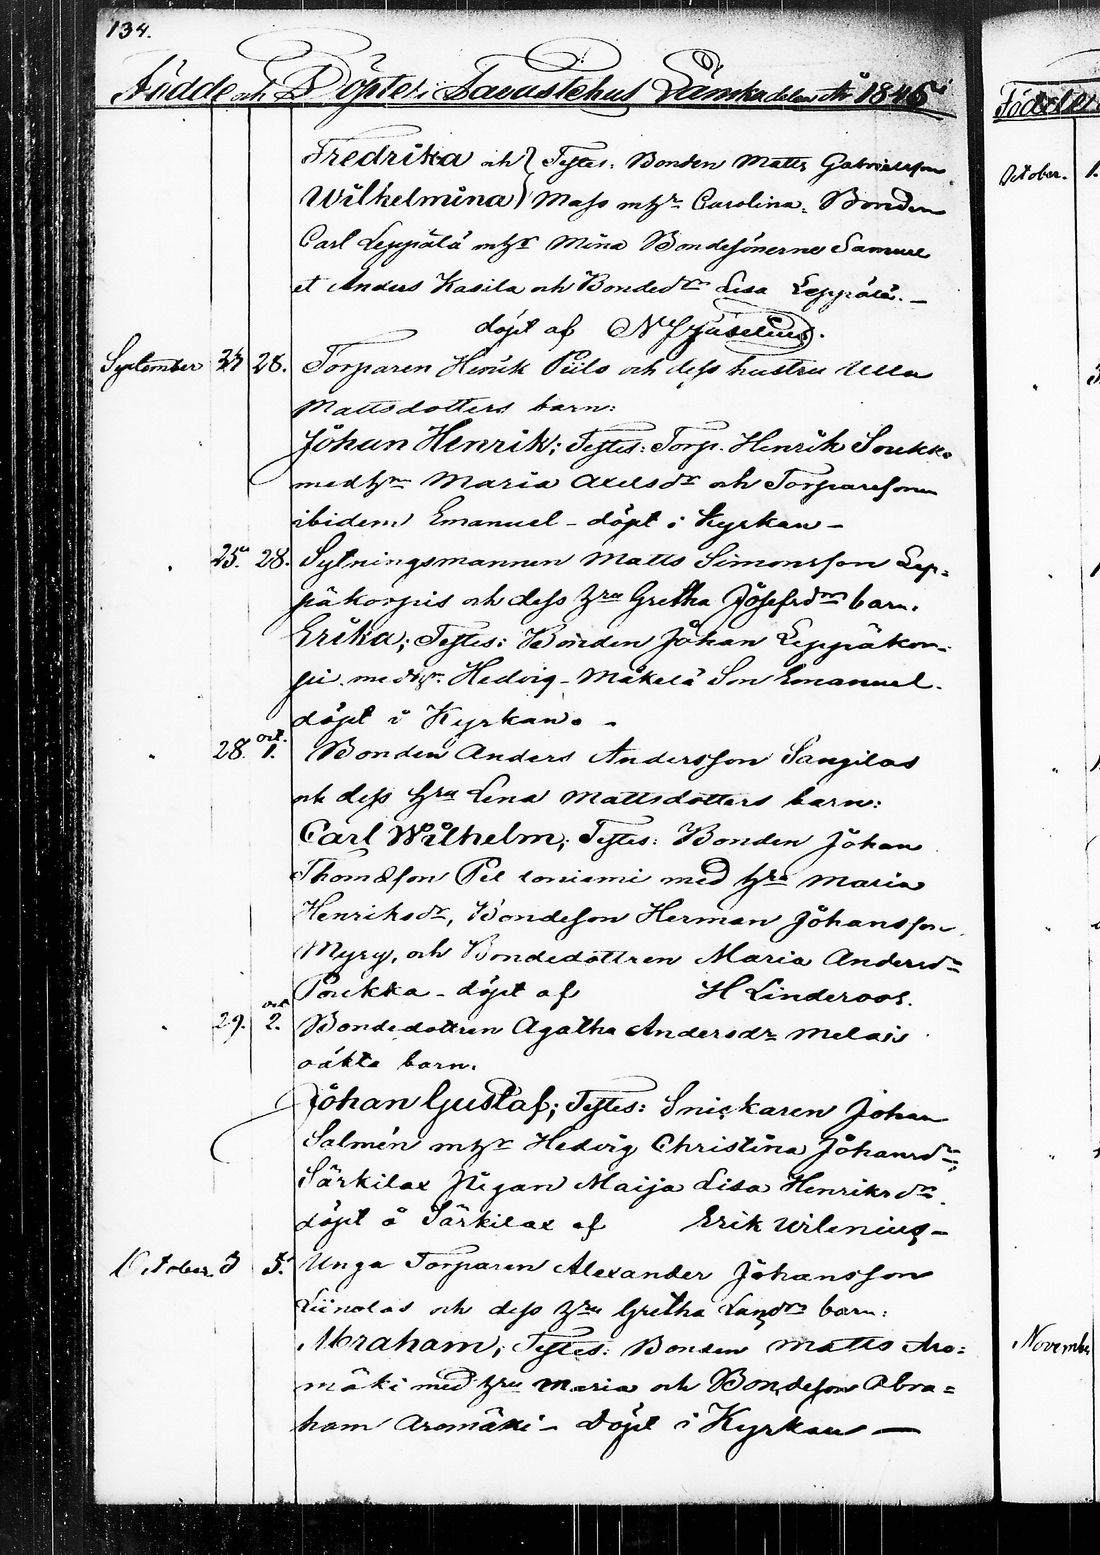 134.
Födde och Döpte i Tavastehus Länska delen År 1845
Fredrika och } Testes: Bonden Matts Gabrielsson
Wilhelmina } Mass m hr Carolina. Bonden
Carl Leppälä m hr Mina Bondesönerne Samuel
et Anders Kasila och Bondedr Lisa Leppälä. –
döpt af
September 24 28. Torparen Henrik Piilo och dess hustru Ulla
Mattsdotters barn:
Johan Henrik; Testes: Torp. Henrik Soukko
med hn Maria Axelsdr och Torparesonen
ibidem Emanuel – döpt i Kyrkan –
25. 28. Sytningsmannen Matts Simonsson Lep=
päkorpis och dess hru Gretha Josefsdrs barn.
Erika; Testes: Bonden Johan Leppäkor=
pi med hr. Hedvig – Mäkelä Son Emanuel.
döpt i Kyrkan. –
28. oct. 1. Bonden Anders Andersson Saugilas
och dess hru Lena Mattsdotters barn:
Carl Wilhelm; Testes: Bonden Johan
Thomasson Pel toniemi med hru Maria
Henriksdr, Bondeson Herman Johansson
Myry, och Bondedottren Maria Andersdr
Poukka – döpt af H Linderoos.
29. oct 2. Bondedottren Agatha Andersdr Melais
oäkta barn.
Johan Gustaf; Testes: Snickaren Johan
Salmén m hr Hedvig Christina Johansdr,
Särkilax Pigan Maija Lisa Henriksdr.
döpt å Särkilax af Erik Wilenius –
October 3 5. Unga Torparen Alexander Johansson
Liinalas och dess hru Gretha barn:
Abraham; Testes: Bonden Matts Aro=
mäki med hru Maria och Bondeson Abra=
ham Aromäki – döpt i Kyrkan —
October. 1.
November